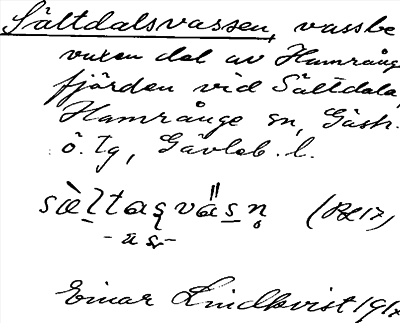 Sältdalsvassen, vassbe
vuxen del av Hamrånge
fjärden vid Sältdala,
Hamrånge sn, Gästr.
ö. tg, Gävleb. l.
sæ̀ltasvä̋sn̥
- a s -
Einar Lindkvist 1917